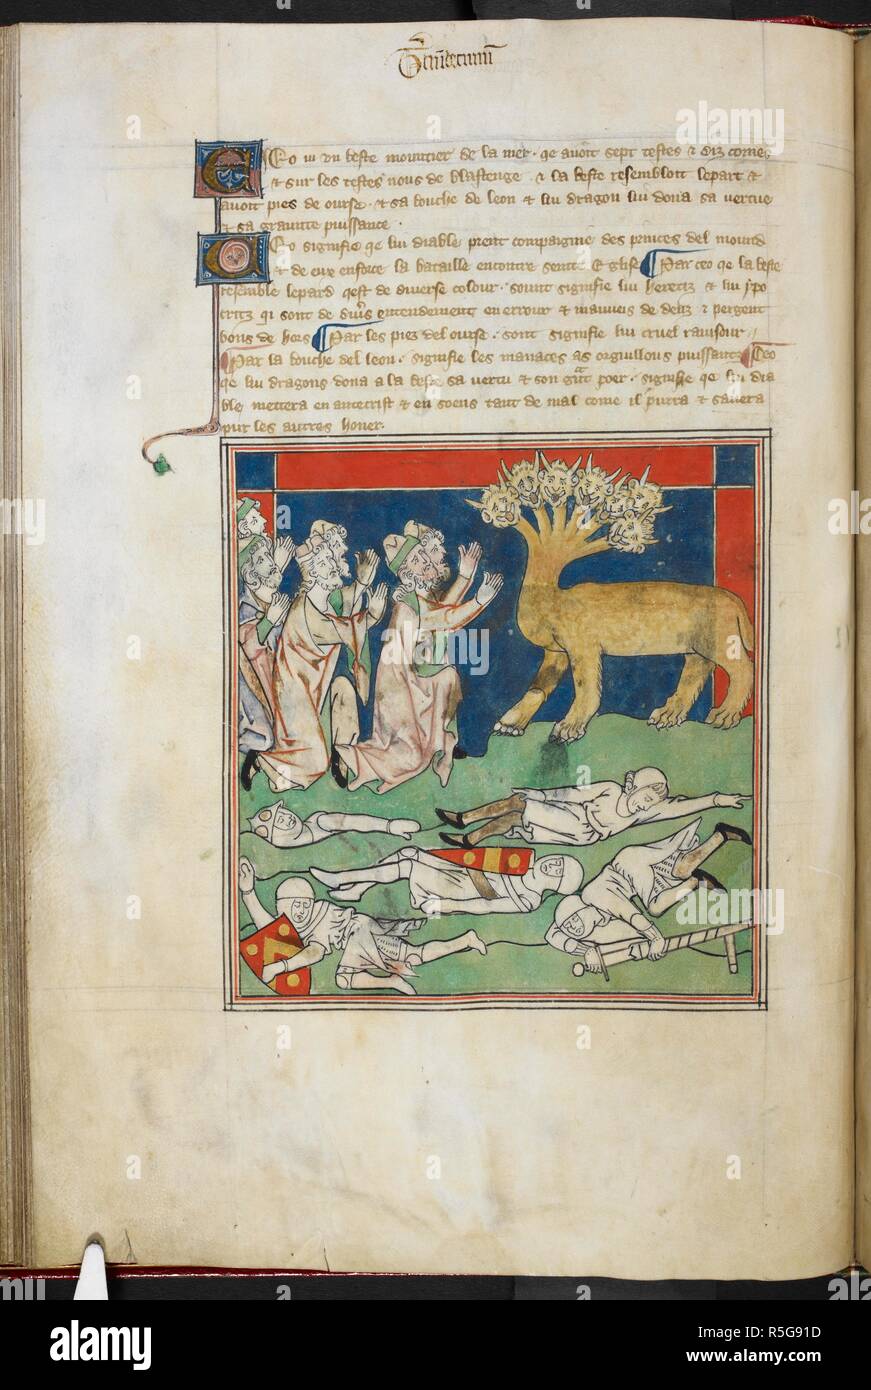 Eo ui un beste mountier de la mer · qe auoit sept testes & diz cornes
& sur les testes nous de blastenge · & la beste resembloit lepart &
auoit pies de ourse · & sa bouche de leon & lui dragon lui dona sa vertue
& sa graunte puissance ·
Ceo signifie qe lui diable prent compaignie des princes del mound
& de eux enforce la bataille encontre seinte Eglise Par ceo qe la beste
resemble lepard qest de diuerse colour · sount signifie lui heretiz & lui ypo
critz qi sont de entendement en errour & mauueis de denz & pergent
bons de hors Par les piez del ourse · sont signifie lui cruel rauisour ·
Par la bouche del leon · signifie les manaces as orguillous puissantz Ceo
qe lui dragons dona a la beste sa vertu & son gnt poer · signifie qe lui dia
ble mettera en antecrist & en soens tant de mal come il purra & sauera
pur les autres honer ·
alamy
Image ID: R5G91D
www.alamy.com